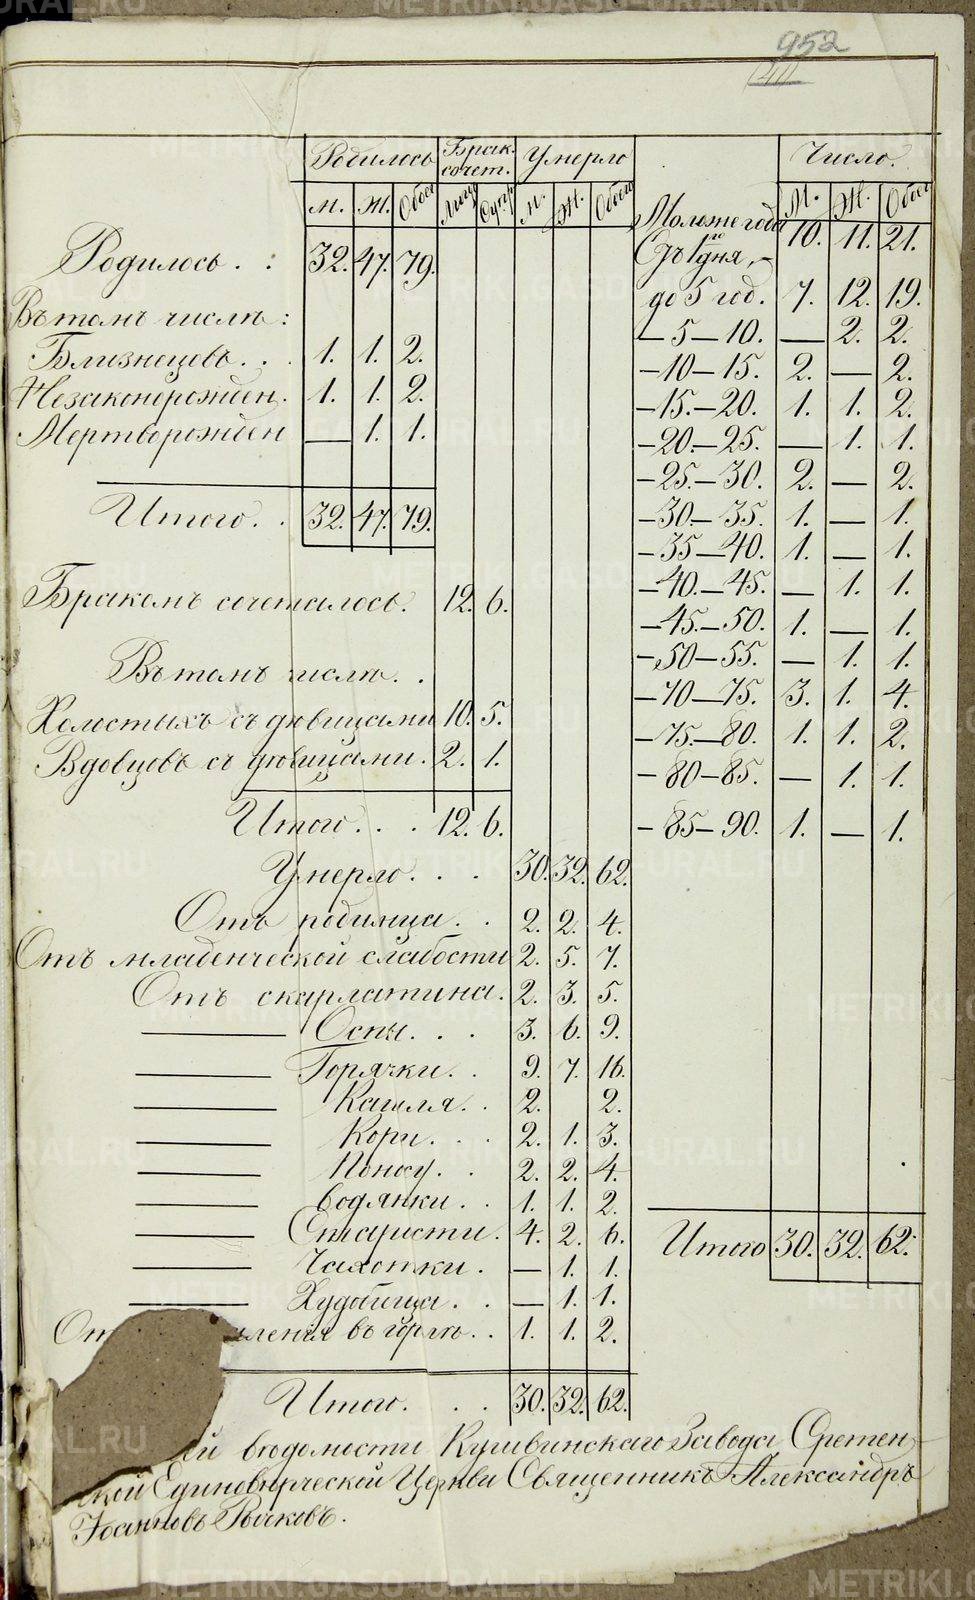 952
Родилось Брак. сочет. Умерло Число.
м. ж. Обоег Лицъ Супр м. ж. Обоего М. Ж. Обоег
Родилось. . 32. 47. 79.
Въ томъ числѣ:
Близнецовъ. . . 1. 1. 2.
Незаконорожден. 1. 1. 2.
Мертворожден — 1. 1.
Итого. . 32. 47. 79.
Бракомъ сочеталось. 12. 6.
Въ томъ числѣ. .
Холостыхъ съ дѣвицами 10. 5.
Вдовцовъ съ дѣвицами. 2. 1.
Итого. . . 12. 6.
Умерло. . . 30. 32. 62.
Отъ родимца. . 2. 2. 4.
Отъ младенческой слабости 2. 5. 7.
Отъ скарлатина. 2. 3. 5.
— Оспы. . . 3. 6. 9.
— Горячки. . 9. 7. 16.
— Кашля. . 2. 2.
— Кори. . . 2. 1. 3.
— Поносу. . 2. 2. 4.
— Водянки. . 1. 1. 2.
— Старости. 4. 2. 6.
— Чахотки. — 1. 1.
— Худобища. . — 1. 1.
От ления въ горлѣ. . 1. 1. 2.
Итого. . . 30. 32. 62.
Моложе года 10. 11. 21.
Съ 1го дня,
до 5 год. 7. 12. 19.
— 5 — 10. — 2. 2.
— 10 — 15. 2. — 2.
— 15. — 20. 1. 1. 2.
— 20. — 25. — 1. 1.
— 25. — 30. 2. — 2.
— 30. — 35. 1. — 1.
— 35 — 40. 1. — 1.
— 40. — 45. — 1. 1.
— 45. — 50. 1. — 1.
— 50 — 55. — 1. 1.
— 70 — 75. 3. 1. 4.
— 75. — 80. 1. 1. 2.
— 80 — 85. — 1. 1.
— 85 — 90. 1. — 1.
Итого 30. 32. 62.
ей вѣдомости Кушвинскаго Завода Сретен
ской Единовѣрческой Церкви Священникъ Александръ
Іоанновъ Рычковъ.
METRIKI.GASO-URAL.RU